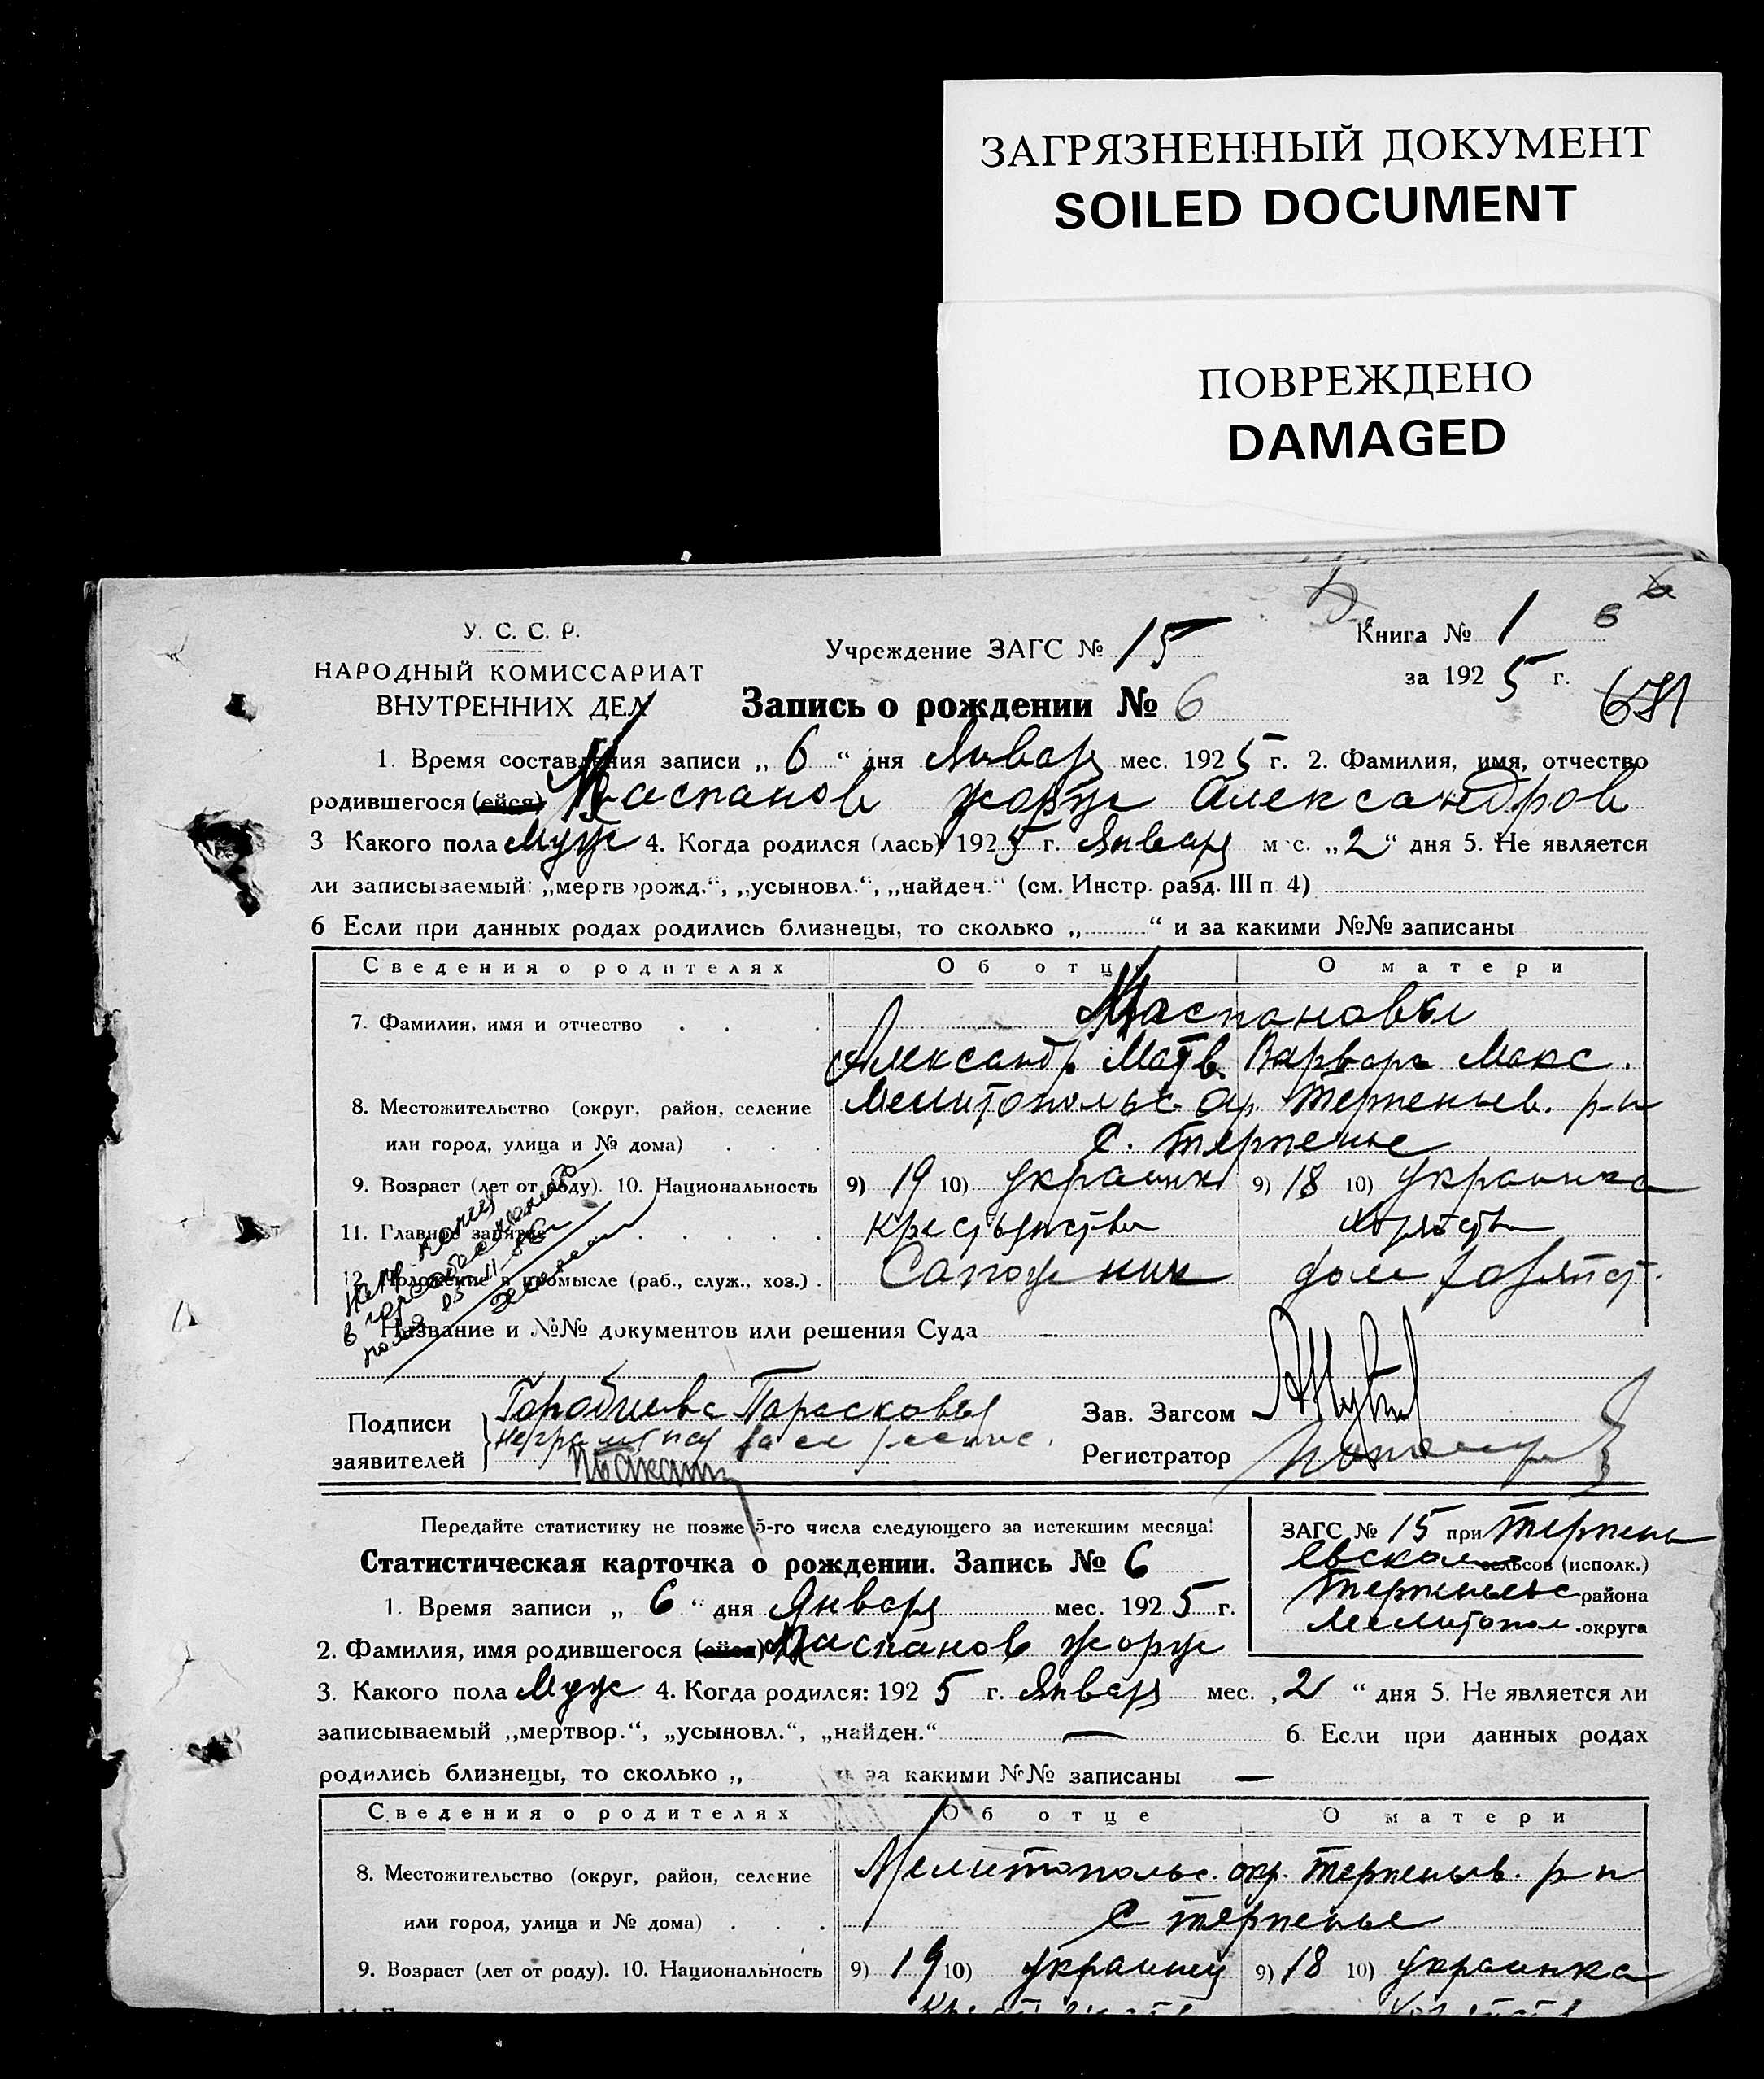 ЗАГРЯЗНЕННЫЙ ДОКУМЕНТ
SOILED DOCUMENT
ПОВРЕЖДЕНО
DAMAGED
У. С. С. Р.
НАРОДНЫЙ КОМИССАРИАТ
ВНУТРЕННИХ ДЕЛ
Учреждение ЗАГС № 15
Книга № 1 6
за 1925 г.
Запись о рождении № 6
1. Время составления записи „ 6 “ дня Января мес. 1925 г. 2. Фамилия, имя, отчество
родившегося (ейся) Жорж Александров
3 Какого пола Муж 4. Когда родился (лась) 1925 г. Января мес. „2“ дня 5. Не является
ли записываемый: „мертворожд.“, „усыновл.“, „найден.“ (см. Инстр. разд. III п. 4)
6 Если при данных родах родились близнецы, то сколько „ “ и за какими №№ записаны
Сведения о родителях Об отце О матери
7. Фамилия, имя и отчество
Александр Матв. Варвара Макс.
8. Местожительство (округ, район, селение Мелитопольс. окр. Терпеньев. р-н
или город, улица и № дома) с. Терпенье
9. Возраст (лет от роду). 10. Национальность 9) 19 10) украинец 9) 18 10) украинка
11. Главное занятие Крестьянство Хозяйство
12. Положение в промысле (раб., служ., хоз.) Сапожник дом. хозяйст.
Название и №№ документов или решения Суда
Подписи
заявителей
Парасковья
неграмотная за ее
Зав. Загсом
Регистратор
Передайте статистику не позже 5-го числа следующего за истекшим месяца!
Статистическая карточка о рождении. Запись № 6
ЗАГС № 15 при Терпень
евском сельсов (исполк.)
Терпеньевс района
Мелитопол. округа
1. Время записи „ 6 “ дня Января мес. 1925 г.
2. Фамилия, имя родившегося (ейся) Жорж
3. Какого пола Муж 4. Когда родился: 1925 г. Января мес. „2“ дня 5. Не является ли
записываемый „мертвор.“, „усыновл.“, „найден.“ — 6. Если при данных родах
родились близнецы, то сколько „ и за какими №№ записаны —
Сведения о родителях Об отце О матери
8. Местожительство (округ, район, селение Мелитопольс. окр. Терпеньев. р-н
или город, улица и № дома) с. Терпенье
9. Возраст (лет от роду). 10. Национальность 9) 19 10) украинец 9) 18 10) украинка